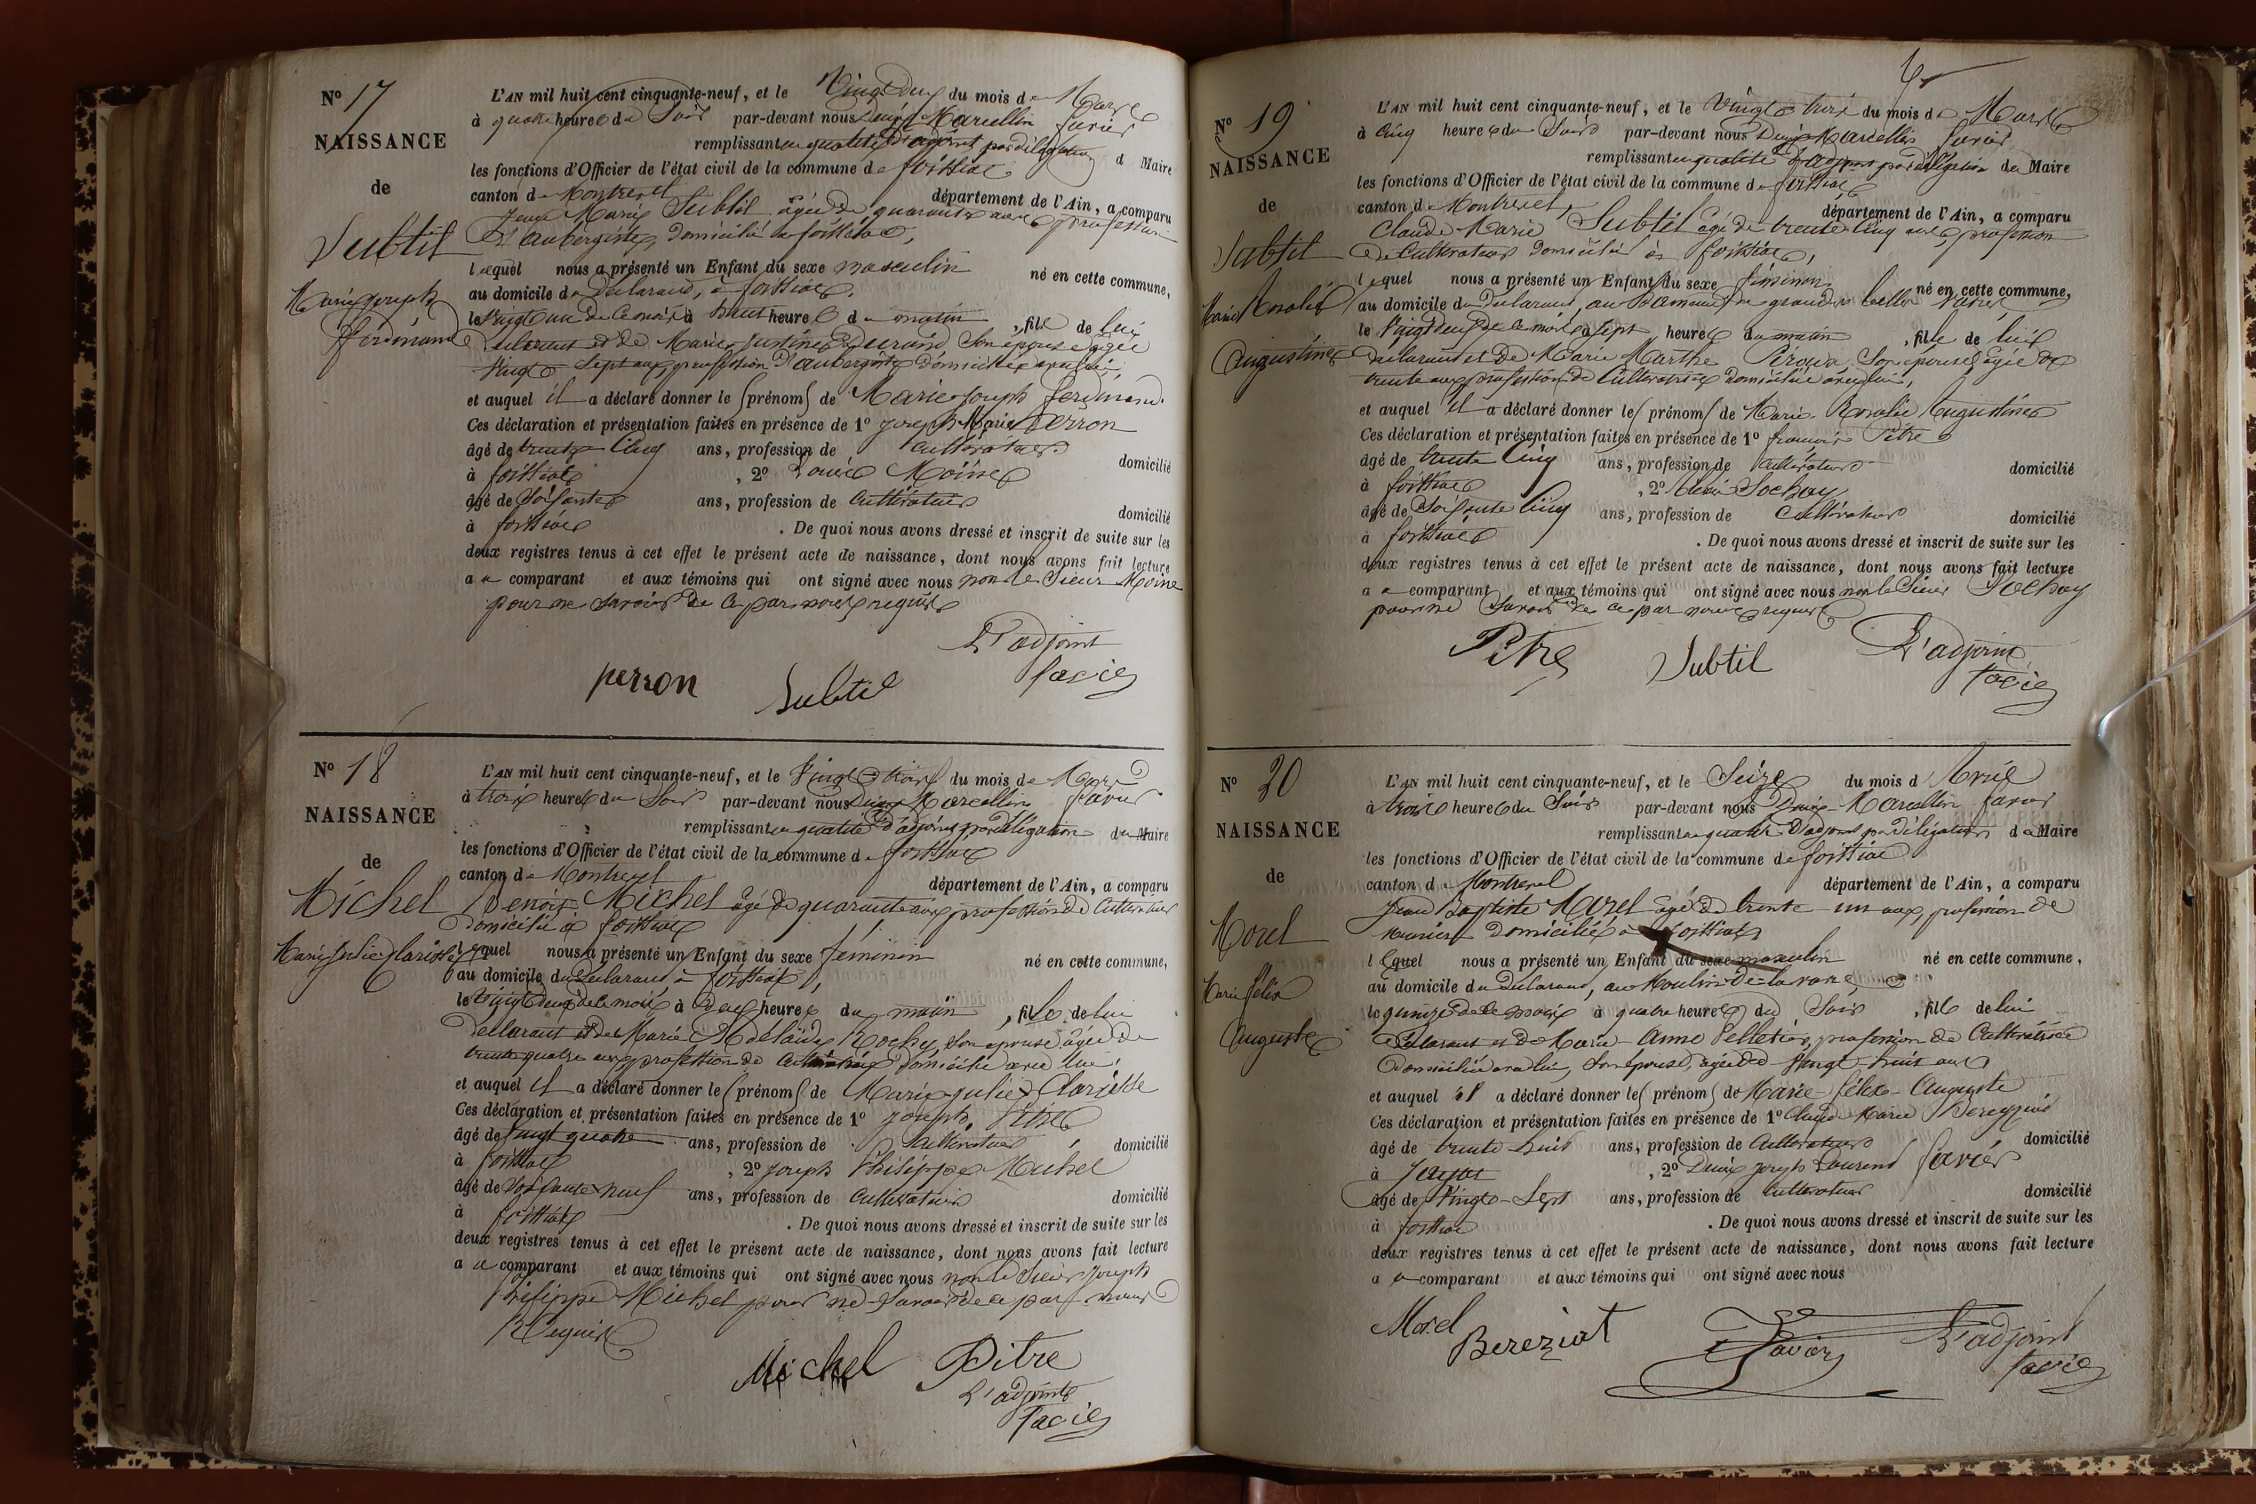 N° 17
NAISSANCE
de
Subtil
Marie Joseph
ferdinand
L'AN mil huit cent cinquante-neuf, et le Vingt Deux du mois de Mars
à quatre heures du Soir par-devant nous Denis Marcellin favier
remplissant en qualité d'adjoint par délégation d Maire
les fonctions d'Officier de l'état civil de la commune de foissiat
canton de Montrevel département de l'Ain, a comparu
Jean Marie Subtil âgé de quarante ans profession
d'aubergiste, domicilié à foissiat,
lequel nous a présenté un Enfant du sexe masculin né en cette commune,
au domicile du declarant, à foissiat,
le Vingt un de ce mois à heures du matin, fils de lui
declarant et de Marie Justine durand Son epouse agée
Vingt Sept ans profession d'aubergiste domiciliée avec lui,
et auquel il a déclaré donner les prénoms de Marie Joseph ferdinand.
Ces déclaration et présentation faites en présence de 1° joseph Marie Perron
âgé de trente cinq ans, profession de cultivateur domicilié
à foissiat, 2° Louis Moine
âgé de Soixante ans, profession de cultivateur domicilié
à foissiat. De quoi nous avons dressé et inscrit de suite sur les
deux registres tenus à cet effet le présent acte de naissance, dont nous avons fait lecture
au comparant et aux témoins qui ont signé avec nous non le Sieur Moine
pour ne Savoir de ce par nous requis
L'adjoint
perron Subtil favier
N° 18
NAISSANCE
de
Michel
Marie Julie Clarisse
L'AN mil huit cent cinquante-neuf, et le Vingt trois du mois de Mars
à trois heures du Soir par-devant nous Denis Marcellin favier
remplissant en qualité d'adjoint par délégation du Maire
les fonctions d'Officier de l'état civil de la commune de foissiat
canton de Montrevel département de l'Ain, a comparu
Benoit Michel âgé de quarante ans profession de Cultivateur
domicilié à foissiat
lequel nous a présenté un Enfant du sexe féminin né en cette commune,
au domicile du declarant à foissiat,
le Vingt deux de ce mois à deux heures du matin, fille de lui
declarant et de Marie Adélaïde Rochy Son epouse agée de
trente quatre ans profession de cultivatrice domiciliée avec lui,
et auquel il a déclaré donner les prénoms de Marie julie Clarisse
Ces déclaration et présentation faites en présence de 1° joseph Pitre
âgé de Vingt quatre ans, profession de cultivateur domicilié
à foissiat, 2° joseph Philippe Michel
âgé de Soixante neuf ans, profession de cultivateur domicilié
à foissiat. De quoi nous avons dressé et inscrit de suite sur les
deux registres tenus à cet effet le présent acte de naissance, dont nous avons fait lecture
au comparant et aux témoins qui ont signé avec nous non le Sieur joseph
Philippe Michel pour ne Savoir de ce par nous
Requis
Michel Pitre
L'adjoint
favier
N° 19
NAISSANCE
de
Subtil
Marie Rosalie
Augustine
L'AN mil huit cent cinquante-neuf, et le Vingt trois du mois de Mars
à cinq heures du Soir par-devant nous Denis Marcellin favier
remplissant en qualité d'adjoint par délégation du Maire
les fonctions d'Officier de l'état civil de la commune de foissiat
canton de Montrevel, département de l'Ain, a comparu
Claude Marie Subtil âgé de trente cinq ans, profession
de Cultivateur domicilié à foissiat,
lequel nous a présenté un Enfant du sexe féminin né en cette commune,
au domicile du declarant, au hameau de
le Vingt deux de ce mois à Sept heures du matin, fille de lui
declarant et de Marie Marthe Son epouse agée de
trente ans profession de Cultivatrice domiciliée avec lui,
et auquel il a déclaré donner les prénoms de Marie Rosalie Augustine
Ces déclaration et présentation faites en présence de 1° françois Pitre
âgé de trente cinq ans, profession de cultivateur domicilié
à foissiat, 2° Sochay
âgé de Soixante cinq ans, profession de cultivateur domicilié
à foissiat. De quoi nous avons dressé et inscrit de suite sur les
deux registres tenus à cet effet le présent acte de naissance, dont nous avons fait lecture
au comparant et aux témoins qui ont signé avec nous non le Sieur Sochay
pour ne Savoir de ce par nous requis
Pitre Subtil L'adjoint
favier
N° 20
NAISSANCE
de
Morel
Marie félix
Auguste
L'AN mil huit cent cinquante-neuf, et le Seize du mois d'Avril
à trois heures du Soir par-devant nous Denis Marcellin favier
remplissant en qualité d'adjoint par délégation du Maire
les fonctions d'Officier de l'état civil de la commune de foissiat
canton de Montrevel département de l'Ain, a comparu
Jean Baptiste Morel âgé de trente un ans profession de
meunier domicilié à foissiat
lequel nous a présenté un Enfant du sexe masculin né en cette commune,
au domicile du declarant, au Moulin
le quinze de ce mois à quatre heures du Soir, fils de lui
declarant et de Marie Anne Pelletier, profession de Cultivatrice
domiciliée avec lui, Son epouse, agée de Vingt huit ans
et auquel il a déclaré donner les prénoms de Marie félix Auguste
Ces déclaration et présentation faites en présence de 1° Claude Marie Bereyziat
âgé de trente huit ans, profession de cultivateur domicilié
à Jayat, 2° Denis joseph Laurent favier
âgé de Vingt Sept ans, profession de cultivateur domicilié
à foissiat. De quoi nous avons dressé et inscrit de suite sur les
deux registres tenus à cet effet le présent acte de naissance, dont nous avons fait lecture
au comparant et aux témoins qui ont signé avec nous
Morel Bereziat favier L'adjoint
favier